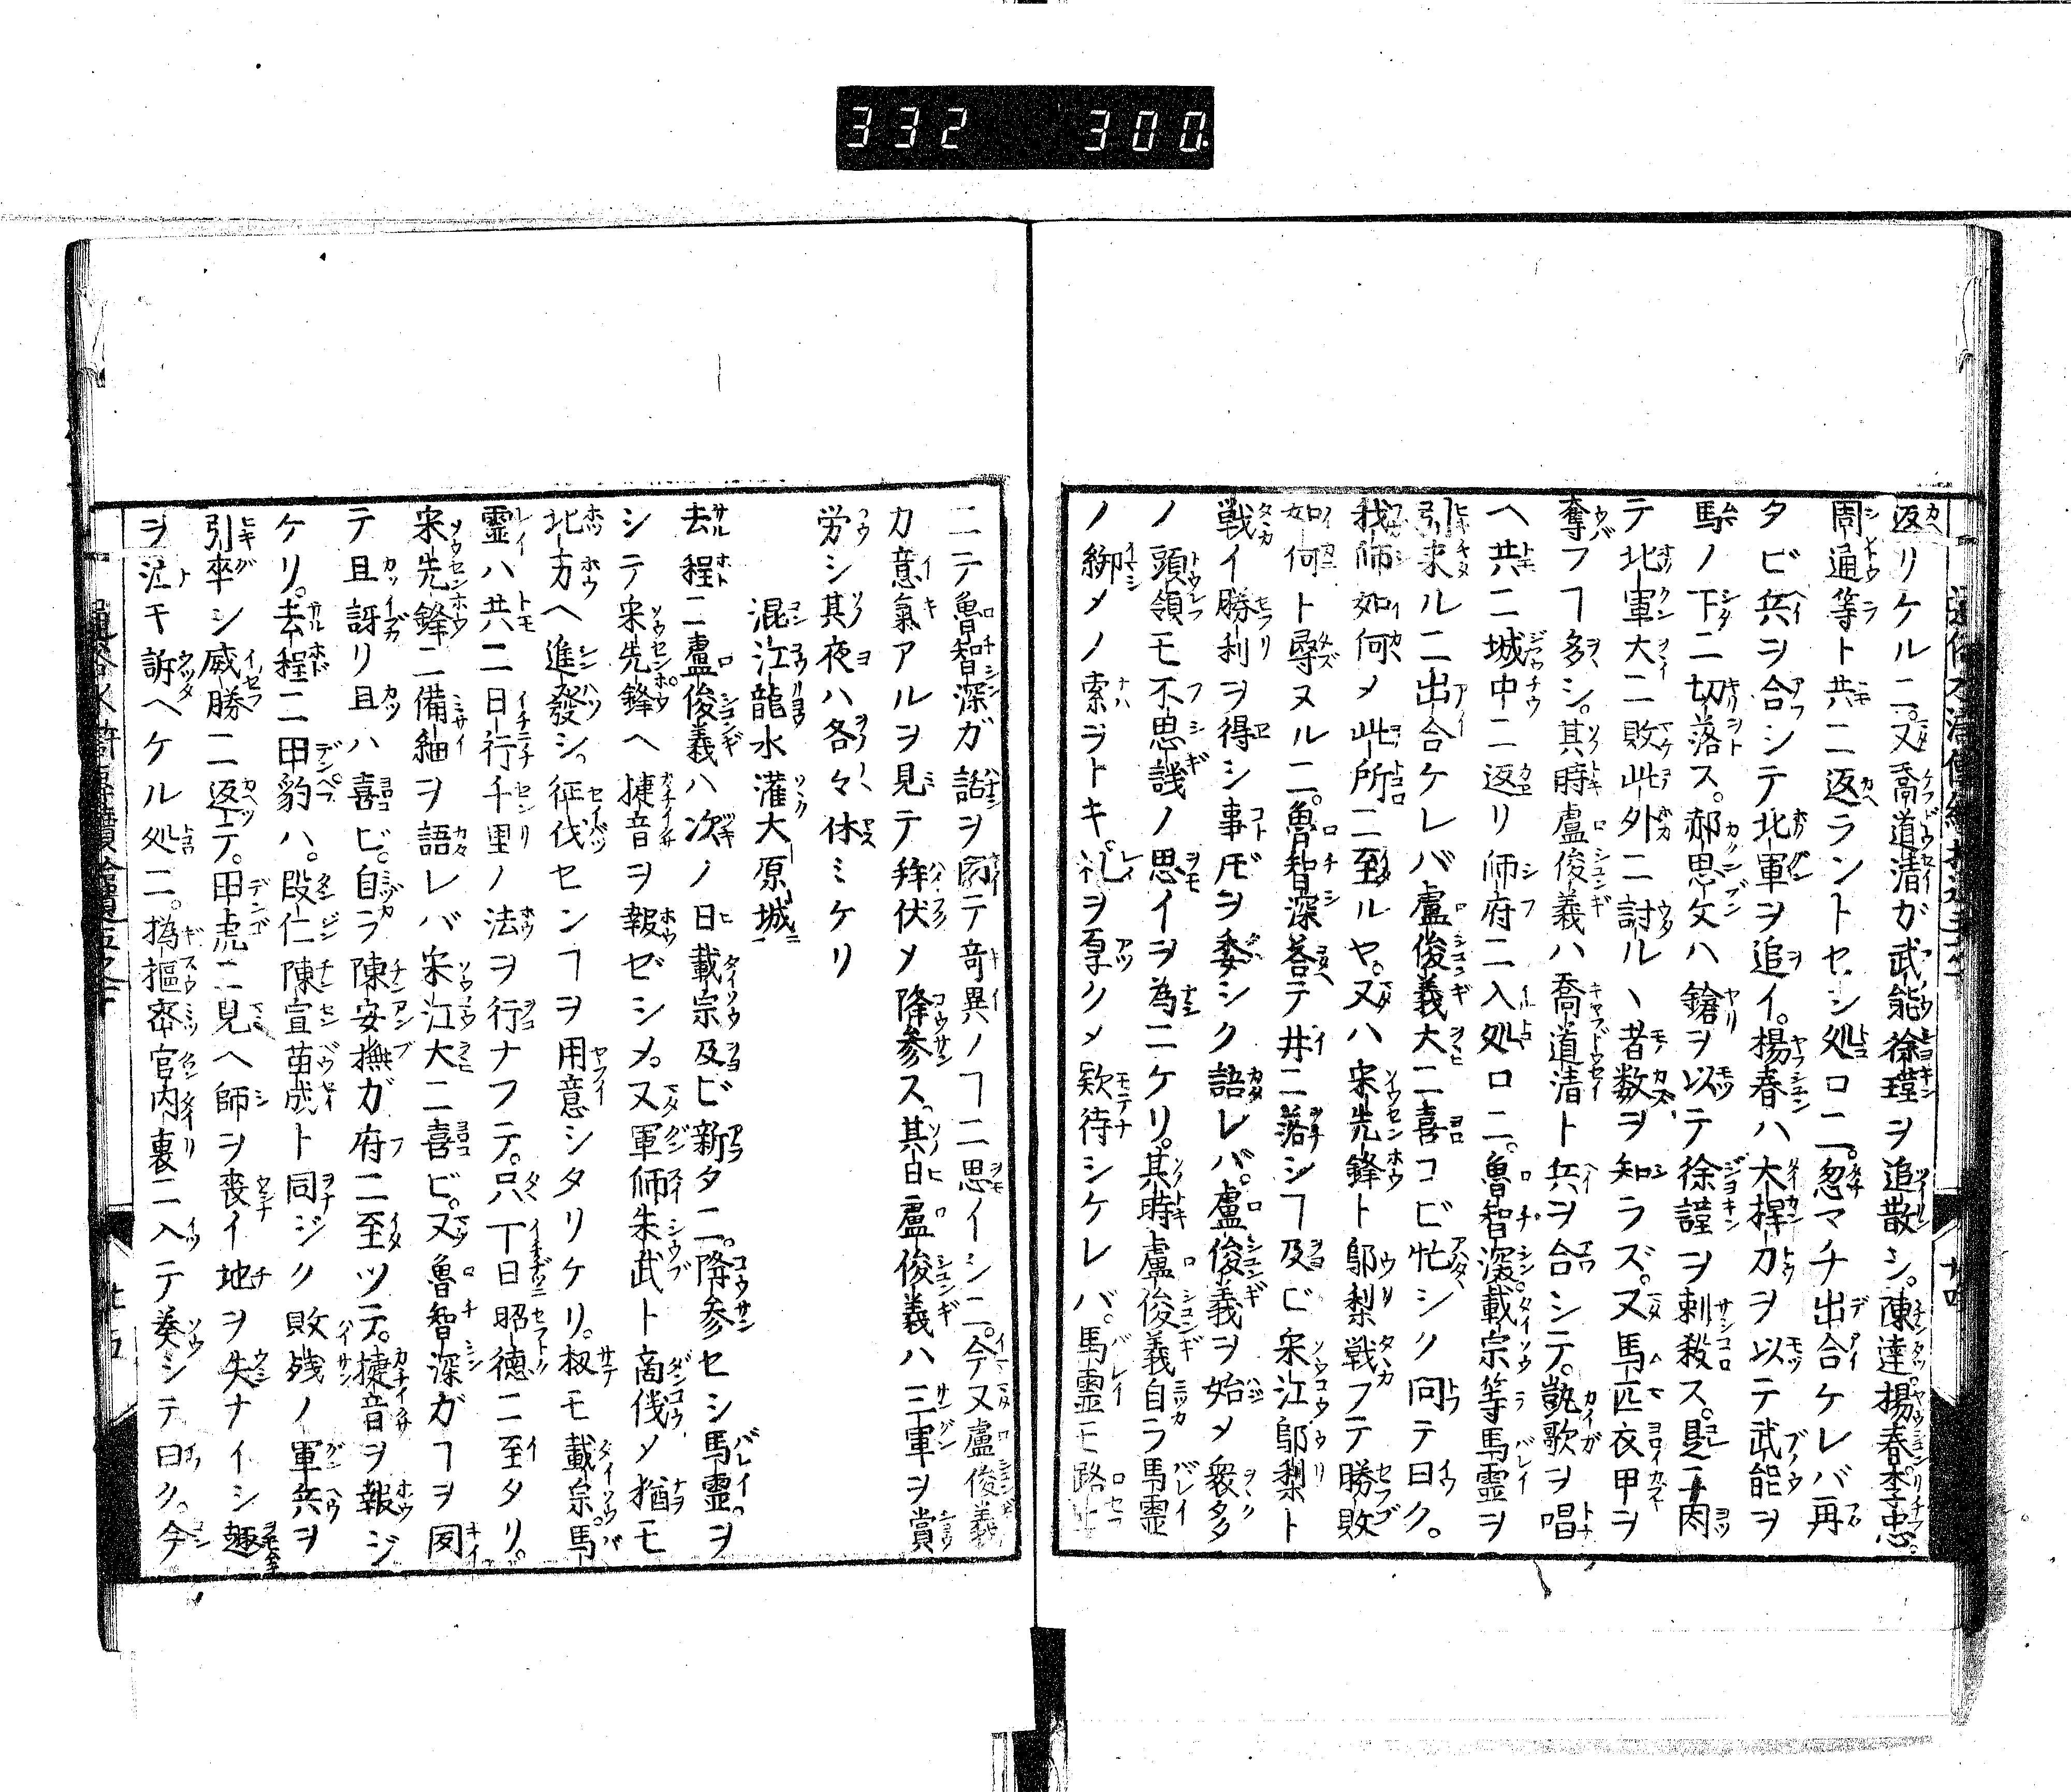 332 300
返リケルニ。又喬道清ガ武能徐瑾ヲ追散シ。陳達揚春李忠。
周通等ト共ニ返ラントセシ処ロニ。忽マチ出合ケレバ再
タビ兵ヲ合シテ北軍ヲ追イ。揚春ハ大桿刀ヲ以テ武能ヲ
馬ノ下ニ切落ス。郝思文ハ鎗ヲ以テ徐謹ヲ刺殺ス。是ニ因
テ北軍大ニ敗此外ニ討ルヽ者数ヲ知ラズ。又馬匹衣甲ヲ
奪フヿ多シ。其時盧俊義ハ喬道清ト兵ヲ合シテ。凱歌ヲ唱
ヘ共ニ城中ニ返リ帥府ニ入処ロニ。魯智深。載宗等馬霊ヲ
引来ルニ出合ケレバ盧俊義大ニ喜コビ忙シク问テ曰ク。
我師如何メ此所ニ至ルヤ。又ハ宋先鋒ト鄔梨戦フテ勝敗
如何ト尋ヌルニ。魯智深荅テ井ニ落シヿ及ビ宋江鄔梨ト
戦イ勝利ヲ得シ事𪜈ヲ委シク語レバ。盧俊義ヲ始メ衆多
ノ頭領モ不思議ノ思イヲ為ニケリ。其時盧俊義自ラ馬霊
ノ綁メノ索ヲトキ。礼ヲ厚クメ欵待シケレバ。馬霊モ路上
ニテ魯智深ガ話ヲ闻テ竒異ノヿニ思イシニ。今又盧俊義
カ意氣アルヲ見テ拜伏メ降参ス。其日盧俊義ハ三軍ヲ賞
労シ其夜ハ各々休ミケリ
混江龍水灌大原城
去程ニ盧俊義ハ次ノ日載宗及ビ新タニ。降参セシ馬霊。ヲ
シテ宋先鋒ヘ捷音ヲ報ゼシメ。又軍師朱武ト商伐メ猶モ
北方ヘ進發シ。征伐センヿヲ用意シタリケリ。扨モ載宗。馬
霊ハ共ニ日行千里ノ法ヲ行ナフテ。只丁日昭德ニ至タリ。
宋先鋒ニ備細ヲ語レバ宋江大ニ喜ビ。又魯智深ガヿヲ闻
テ且訝リ且ハ喜ビ。自ラ陳安撫ガ府ニ至ツテ。捷音ヲ報ジ
ケリ。去程ニ田豹ハ。段仁陳宣苗成ト同ジク敗残ノ軍兵ヲ
引率シ威勝ニ返テ。田虎ニ見ヘ師ヲ喪イ地ヲ失ナイシ趣
ヲ泣キ訴ヘケル処ニ。撝樞密官内裏ニ入テ奏シテ曰ク。今